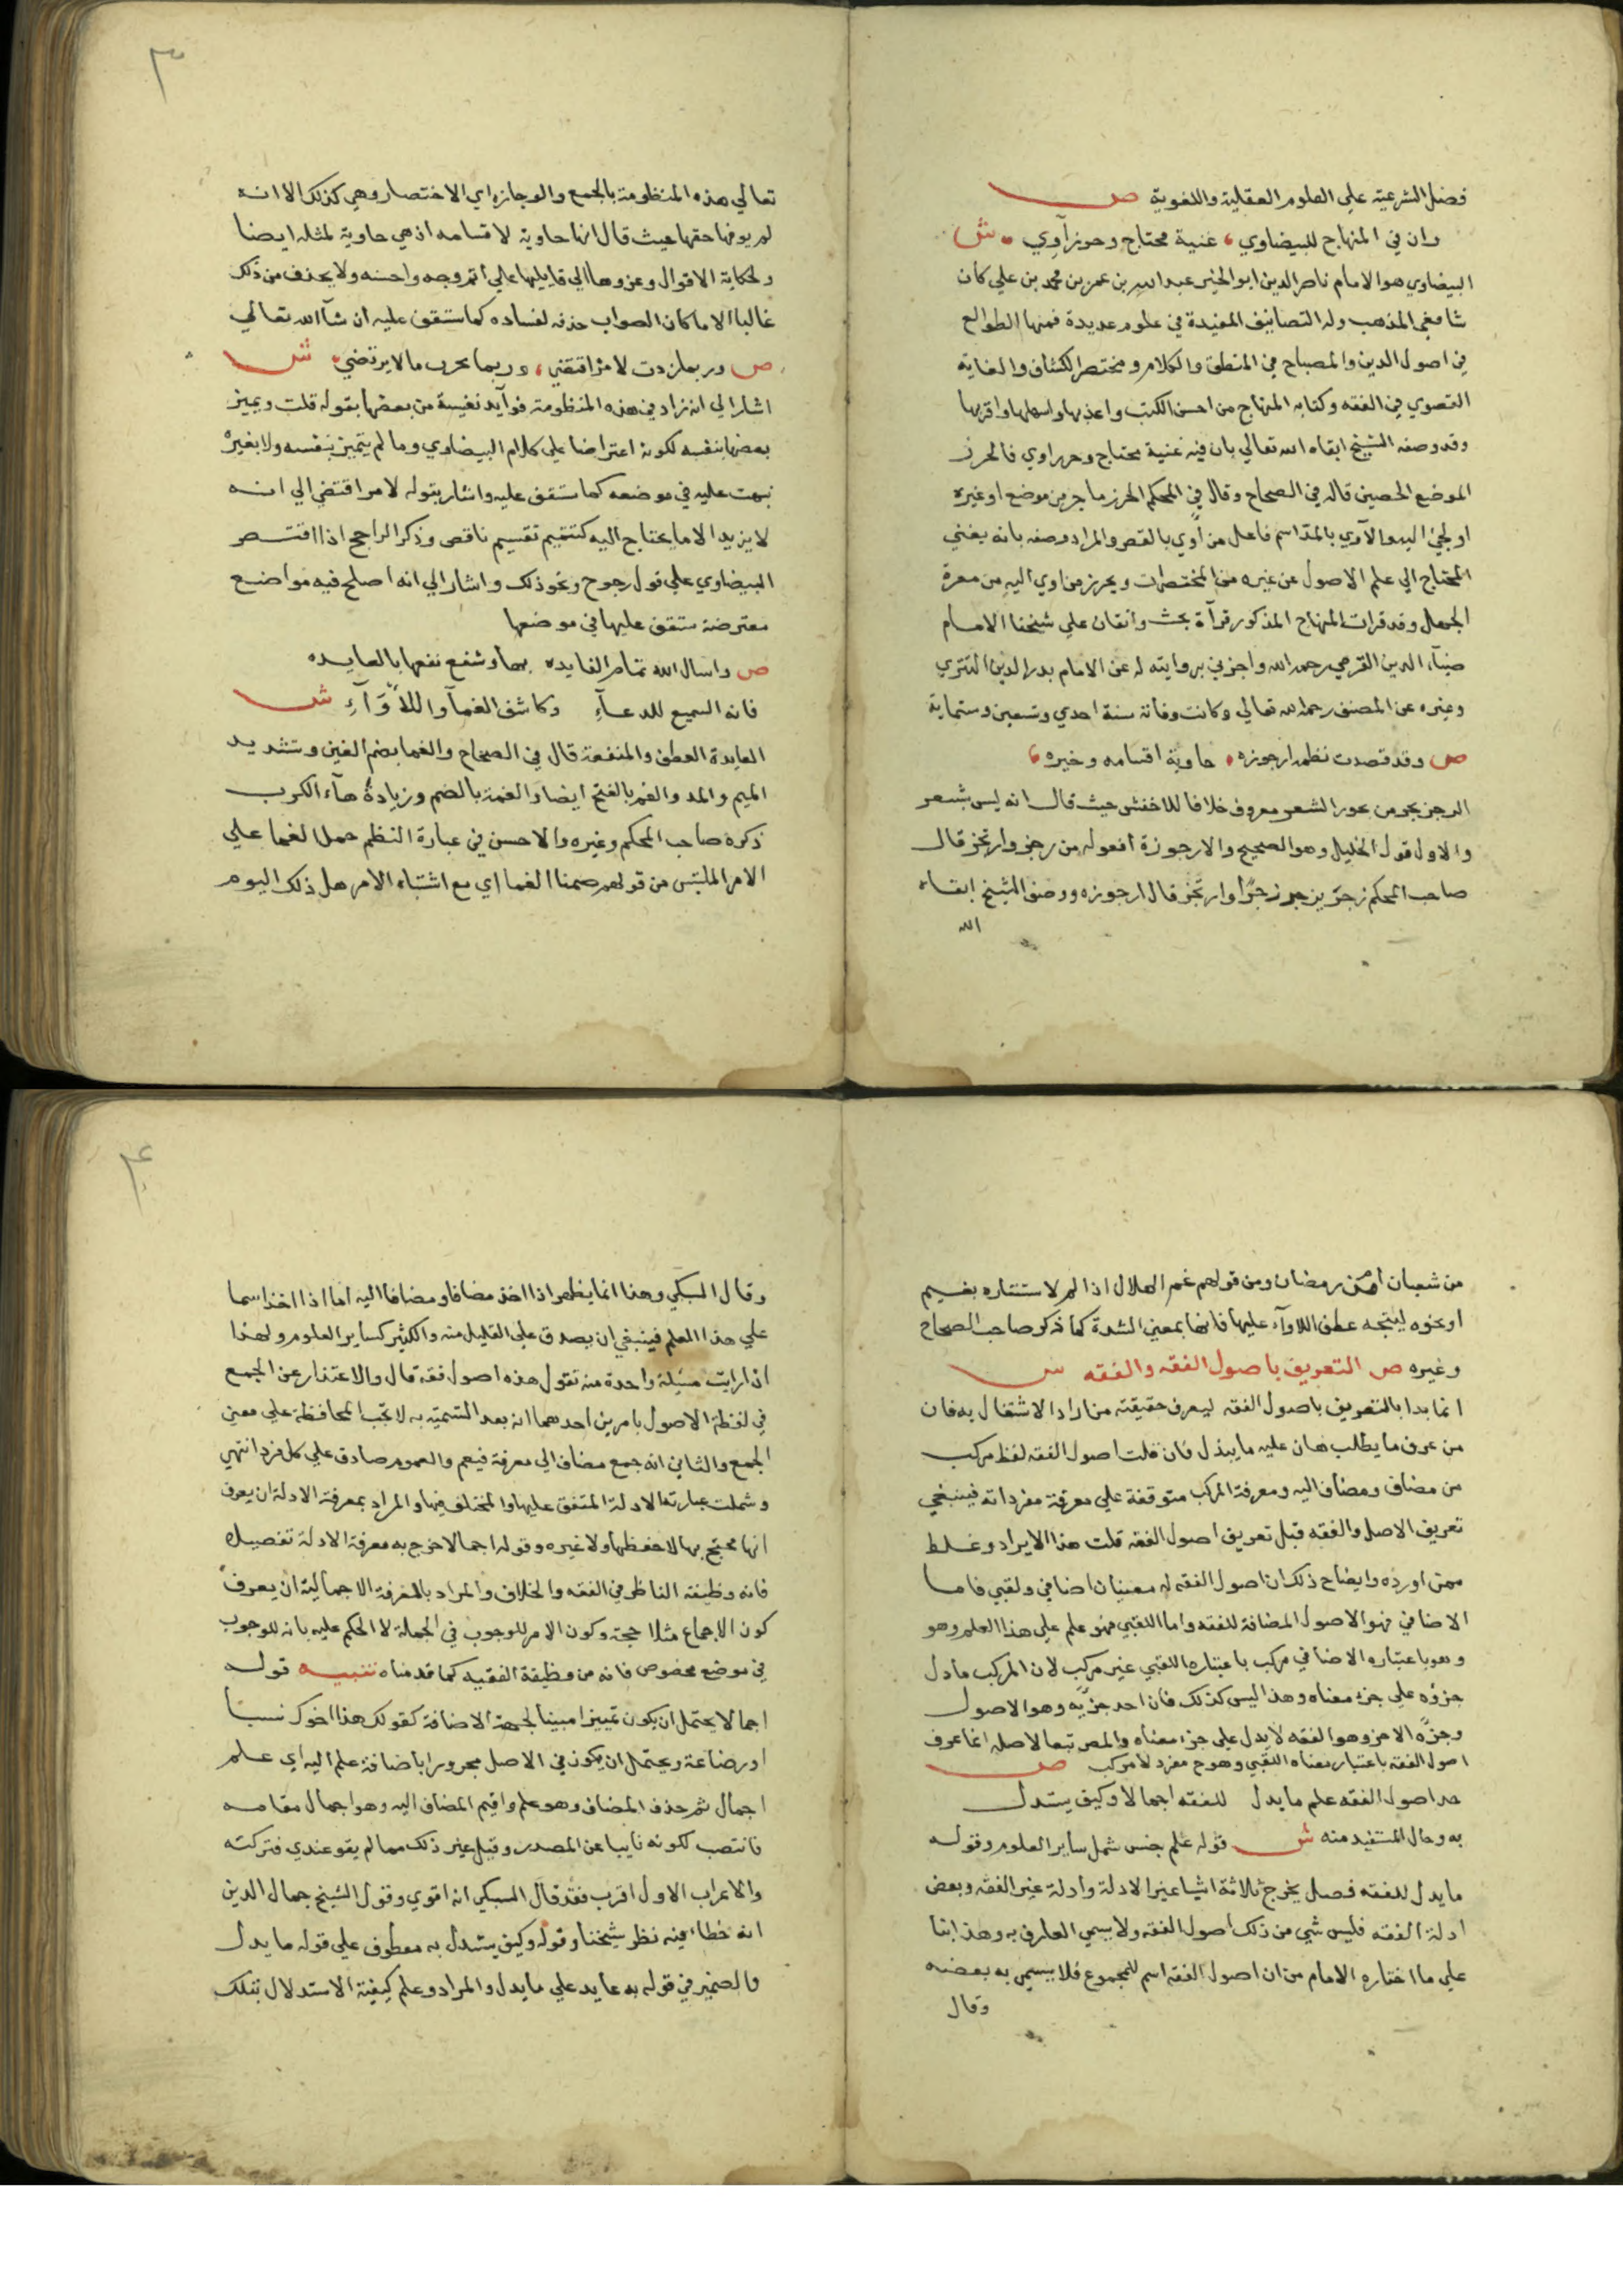 فضل الشرعية علي العلوم العقلية واللغوية ص
وان في المنهاج للبيضاوي، غنية محتاج وحرز آوي، ش
البيضاوي هو الامام ناصر الدين ابو الخير عبد الله بن عمر بن محمد بن علي كان
شافعي المذهب وله التصانيف المفيدة في علوم عديدة فمنها الطوالع
في اصول الدين والمصباح في المنطق والكلام ومختصر الكشاف والغاية
القصوي في الفقه وكتابه المنهاج من احسن الكتب واعذبها واسهلها واقربها
وقد وصفه الشيخ ابقاه الله تعالي بان فيه غنية محتاج وحرز اوي فالحرز
الموضع الحصين قاله في الصحاح وقال في المحكم الحرز ما حرز من موضع او غيره
او لجئ اليه والآوي بالمد اسم فاعل من أوي بالقصر والمراد وصفه بانه يغني
المحتاج الي علم الاصول عن غيره من المختصرات ويحرز من اوي اليه من معرة
الجهل وقد قرات المنهاج المذكور قرآة بحث واتقان علي شيخنا الامام
ضيآء الدين القرمي رحمه الله واجزني بروايته له عن الامام بدر الدين التتري
وغيره عن المصنف رحمه الله تعالي وكانت وفاته سنة احدي وتسعين وستماية
ص وقد قصدت نظمه ارجوزه، حاوية اقسامه وجيزه،
الرجز بحر من بحور الشعر معروف خلافا للاخفش حيث قال انه ليس بشعر
والاول قول الخليل وهو الصحيح والارجوزة افعوله من رجز وارتجز قال
صاحب المحكم زجز يرجز رجزًا وارتجز قال ارجوزه ووصف الشيخ ابقاه
الله
٣
تعالي هذه المنظومة بالجمع والوجازه اي الاختصار وهي كذلك الا انه
لم يوفها حقها حيث قال انها حاوية لاقسامه اذ هي حاوية لمثله ايضا
ولحكاية الاقوال وعزوها الي قايليها علي اتم وجه واحسنه ولا يحذف من ذلك
غالبا الا ما كان الصواب حذفه لفساده كما ستقف عليه ان شآ الله تعالي
ص وربما زدت لامر اقتضي، وربما يحرب ما لا يرتضي، ش
اشار الي انه زاد في هذه المنظومة فوآيد نفيسة من بعضها بقوله قلت ويميز
بعضها بنفسه لكونه اعتراضا علي كلام البيضاوي وما لم يتميز بنفسه ولا بغيره
نبهت عليه في موضعه كما ستقف عليه واشار بقوله لامر اقتضي الي انه
لا يزيد الا ما يحتاج اليه كتتميم تقسيم ناقص وذكر الراجح اذا اقتصر
البيضاوي علي قول مرجوح ونحو ذلك واشار الي انه اصلح فيه مواضع
معترضة ستقف عليها في موضعها
ص واسال الله تمام الفايده بها وشفع نفعها بالعايده
فانه السميع للدعآء وكاشف الغمآ واللأوآء ش
العايدة العطف والمنفعة قال في الصحاح والغما بضم الغين وتشديد
الميم والمد والغم بالفتح ايضا والغمة بالضم وزيادة هآء الكرب
ذكره صاحب المحكم وغيره والاحسن في عبارة النظم حمل الغما علي
الامر الملتبس من قولهم صمنا الغما اي مع اشتباه الامر هل ذلك اليوم
من شعبان ام من رمضان ومن قولهم غم الهلال اذا لم لاستتاره بغيم
او نحوه ليتجه عطف اللاوآء عليها فانها بمعني الشدة كما ذكر صاحب الصحاح
وغيره ص التعريف باصول الفقه والفقه ش
انما بدا بالتعريف باصول الفقه ليعرف حقيقته من اراد الاشتغال به فان
من عرف ما يطلب هان عليه ما يبذل فان قلت اصول الفقه لفظ مركب
من مضاف ومضاف اليه ومعرفة المركب متوقفة علي معرفة مفرداته فينبغي
تعريف الاصل والفقه قبل تعريف اصول الفقه قلت هذا الايراد وغلط
ممن اورده وايضاح ذلك ان اصول الفقه له معنيان اضافي ولقبي فاما
الاضافي فهو الاصول المضافة للفقه واما اللقبي فهو علم علي هذا العلم وهو
وهو باعتباره الاضافي مركب باعتباره اللقبي غير مركب لان المركب ما دل
جزؤه علي جزء معناه وهذا ليس كذلك فان احد جزئيه وهو الاصول
وجزه الاخر وهو الفقه لا يدل علي جزء معناه والمص تبعا لاصله انما عرف
اصول الفقه باعتبار معناه اللقبي وهو ح مفرد لا مركب ص
حد اصول الفقه علم ما يدل للفقه اجمالا وكيف يستدل
به وحال المستفيد منه ش قوله علم جنس شمل ساير العلوم وقوله
ما يدل للفقه فصل يخرج ثلاثة اشيا غير الادلة وادلة غير الفقه وبعض
ادلة الفقه فليس شي من ذلك اصول الفقه ولا يسمي العارف به وهذا بنا
علي ما اختاره الامام من ان اصول الفقه اسم للمجموع فلا يسمي به بعضه
وقال
٤
وقال السبكي وهذا انما يظهر اذا اخذ مضافا ومضافا اليه اما اذا اخذ اسما
علي هذا العلم فينبغي ان يصدق علي القليل منه والكثير كساير العلوم ولهذا
اذا رايت مسئلة واحدة منه تقول هذه اصول فقه قال والاعتذار عن الجمع
في لفظة الاصول بامرين احدهما انه بعد التسمية به لا تجب المحافظة علي معني
الجمع والثاني انه جمع مضاف الي معرفة فيعم والعموم صادق علي كل فرد انتهي
وشملت عبارته الادلة المتفق عليها والمختلف فيها والمراد بمعرفة الادلة ان يعرف
انها محتج بها لا حفظها ولا غيره وقوله اجمالا خرج به معرفة الادلة تفصيلا
فانه وظيفة الناظر في الفقه والخلاف والمراد بالمعرفة الاجمالية ان يعرف
كون الاجماع مثلا حجة وكون الامر للوجوب في الجملة لا الحكم عليه بانه للوجوب
في موضع مخصوص فانه من وظيفة الفقيه كما قدمناه تنبيه قوله
اجمالا يحتمل ان يكون تمييزا مبينا لجهة الاضافة كقولك هذا اخوك نسبا
او رضاعة ويحتمل ان يكون في الاصل مجرورا باضافة علم اليه اي علم
اجمال ثم حذف المضاف وهو علم واقيم المضاف اليه وهو اجمال مقامه
فانتصب لكونه نايبا عن المصدر وقيل غير ذلك مما لم يقو عندي فتركته
والاعراب الاول اقرب فقد قال السبكي انه اقوي وقول الشيخ جمال الدين
انه خطا فيه نظر شيخنا وقوله وكيف يستدل به معطوف علي قوله ما يدل
والضمير في قوله به عايد علي ما يدل والمراد وعلم كيفية الاستدلال بتلك